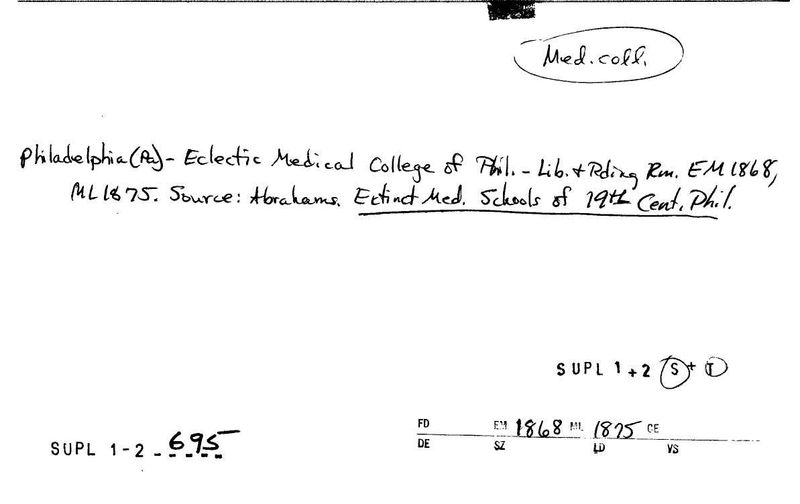 Med. coll.
Philadelphia (Pa) - Eclectic Medical College of Phil. - Lib. + Rding Rm. EM 1868,
ML 1875. Source: Abrahams. Extinct Med. Schools of 19th Cent. Phil.
SUPL 1+2 S + T
FD EM 1868 ML 1875 CE
SUPL 1-2 - 695
DE SZ LD VS